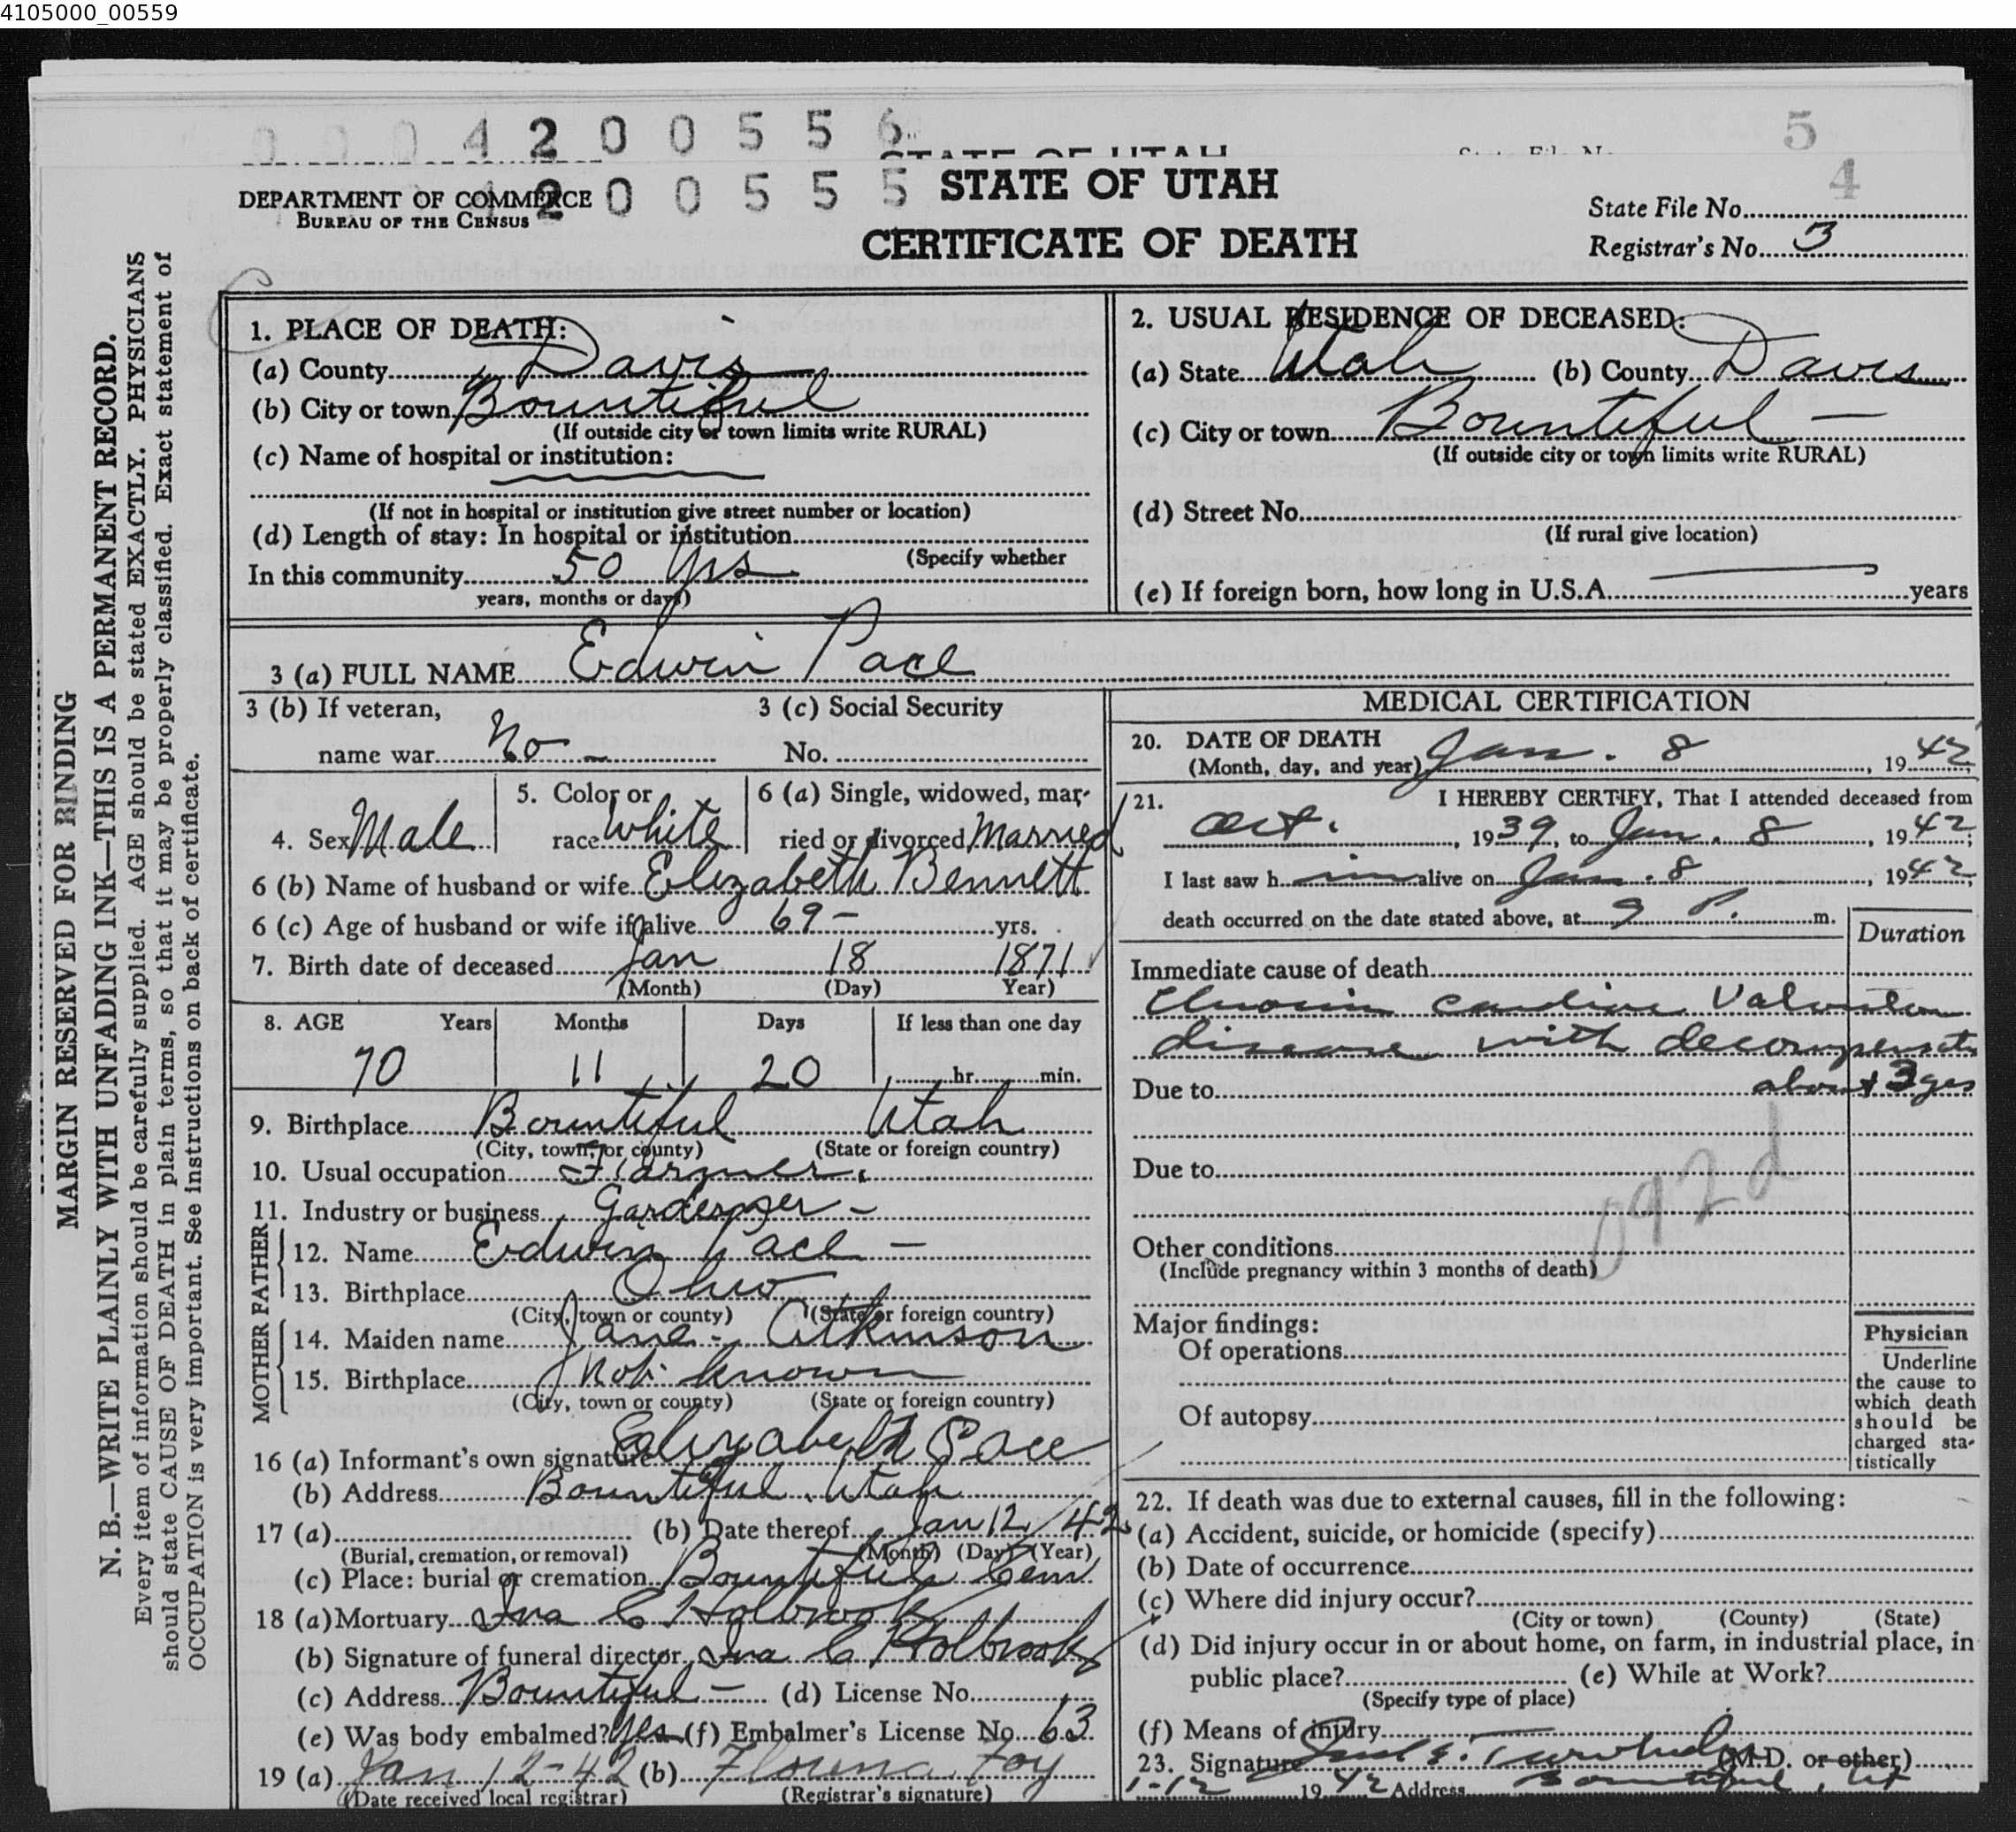 4105000_00559
0 0 0 4 2 0 0 5 5 6
5
STATE OF UTAH
4 2 0 0 5 5 5
4
DEPARTMENT OF COMMERCE
BUREAU OF THE CENSUS
STATE OF UTAH
CERTIFICATE OF DEATH
State File No.
Registrar's No. 3
MARGIN RESERVED FOR BINDING
N. B.—WRITE PLAINLY WITH UNFADING INK—THIS IS A PERMANENT RECORD.
Every item of information should be carefully supplied. AGE should be stated EXACTLY. PHYSICIANS
should state CAUSE OF DEATH in plain terms, so that it may be properly classified. Exact statement of
OCCUPATION is very important. See instructions on back of certificate.
1. PLACE OF DEATH:
(a) County Davis
(b) City or town Bountiful
(If outside city or town limits write RURAL)
(c) Name of hospital or institution:
(If not in hospital or institution give street number or location)
(d) Length of stay: In hospital or institution
(Specify whether
In this community 50 yrs
years, months or days)
2. USUAL RESIDENCE OF DECEASED:
(a) State Utah (b) County Davis
(c) City or town Bountiful —
(If outside city or town limits write RURAL)
(d) Street No.
(If rural give location)
(e) If foreign born, how long in U.S.A. years
3 (a) FULL NAME Edwin Pace
3 (b) If veteran,
name war No
3 (c) Social Security
No.
4. Sex Male
5. Color or
race White
6 (a) Single, widowed, mar-
ried or divorced Married
6 (b) Name of husband or wife Elizabeth Bennett
6 (c) Age of husband or wife if alive 69 — yrs.
7. Birth date of deceased Jan 18 1871
(Month) (Day) Year)
8. AGE Years Months Days If less than one day
70 11 20 hr. min.
9. Birthplace Bountiful Utah
(City, town, or county) (State or foreign country)
10. Usual occupation Farmer
11. Industry or business Gardener —
FATHER
12. Name Edwin Pace —
13. Birthplace Ohio
(City, town or county) (State or foreign country)
MOTHER
14. Maiden name Jane Atkinson
15. Birthplace Not known
(City, town or county) (State or foreign country)
16 (a) Informant's own signature Elizabeth Pace
(b) Address Bountiful Utah
17 (a) (b) Date thereof Jan 12/42
(Burial, cremation, or removal) (Month) (Day) (Year)
(c) Place: burial or cremation Bountiful Cem
18 (a) Mortuary Iva C Holbrook
(b) Signature of funeral director Iva C Holbrook
(c) Address Bountiful — (d) License No.
(e) Was body embalmed? Yes (f) Embalmer's License No. 63
19 (a) Jan 12-42 (b) Florena Foy
(Date received local registrar) (Registrar's signature)
MEDICAL CERTIFICATION
20. DATE OF DEATH
(Month, day, and year) Jan. 8, 1942
21. I HEREBY CERTIFY, That I attended deceased from
Oct., 1939, to Jan. 8, 1942;
I last saw him alive on Jan. 8, 1942;
death occurred on the date stated above, at 9 P. m.
Duration
Immediate cause of death
Chronic cardiac Valvular
disease with decompensation
about 3 yrs
Due to
Due to
092d
Other conditions
(Include pregnancy within 3 months of death)
Major findings:
Of operations
Of autopsy
Physician
Underline
the cause to
which death
should be
charged sta-
tistically
22. If death was due to external causes, fill in the following:
(a) Accident, suicide, or homicide (specify)
(b) Date of occurrence
(c) Where did injury occur?
(City or town) (County) (State)
(d) Did injury occur in or about home, on farm, in industrial place, in
public place? (e) While at Work?
(Specify type of place)
(f) Means of injury
23. Signature (M.D. or other)
1-12 1942 Address Bountiful, Ut